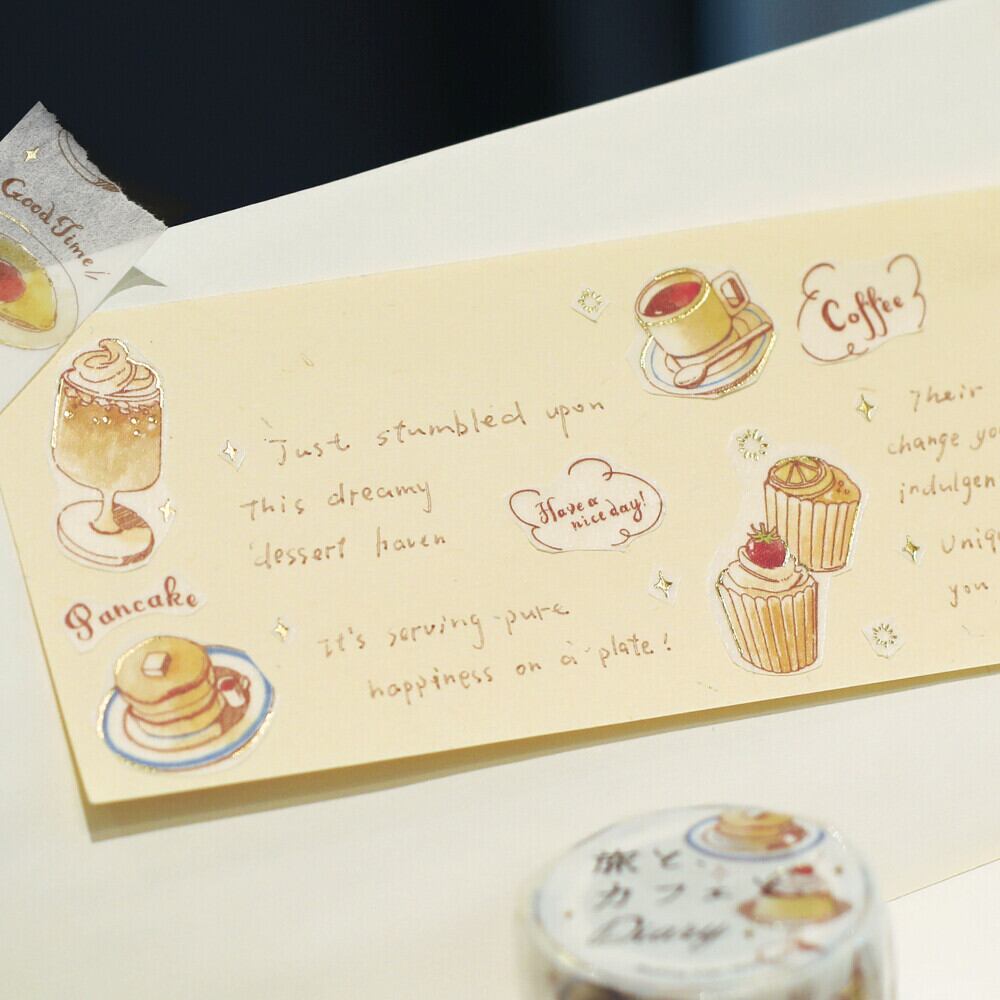 Good Time
Just stumbled upon
this dreamy
dessert haven
Pancake
It's serving pure
happiness on a plate!
Have a
nice day!
Coffee
Their
change
unique
you
旅と
カフェと
Diary